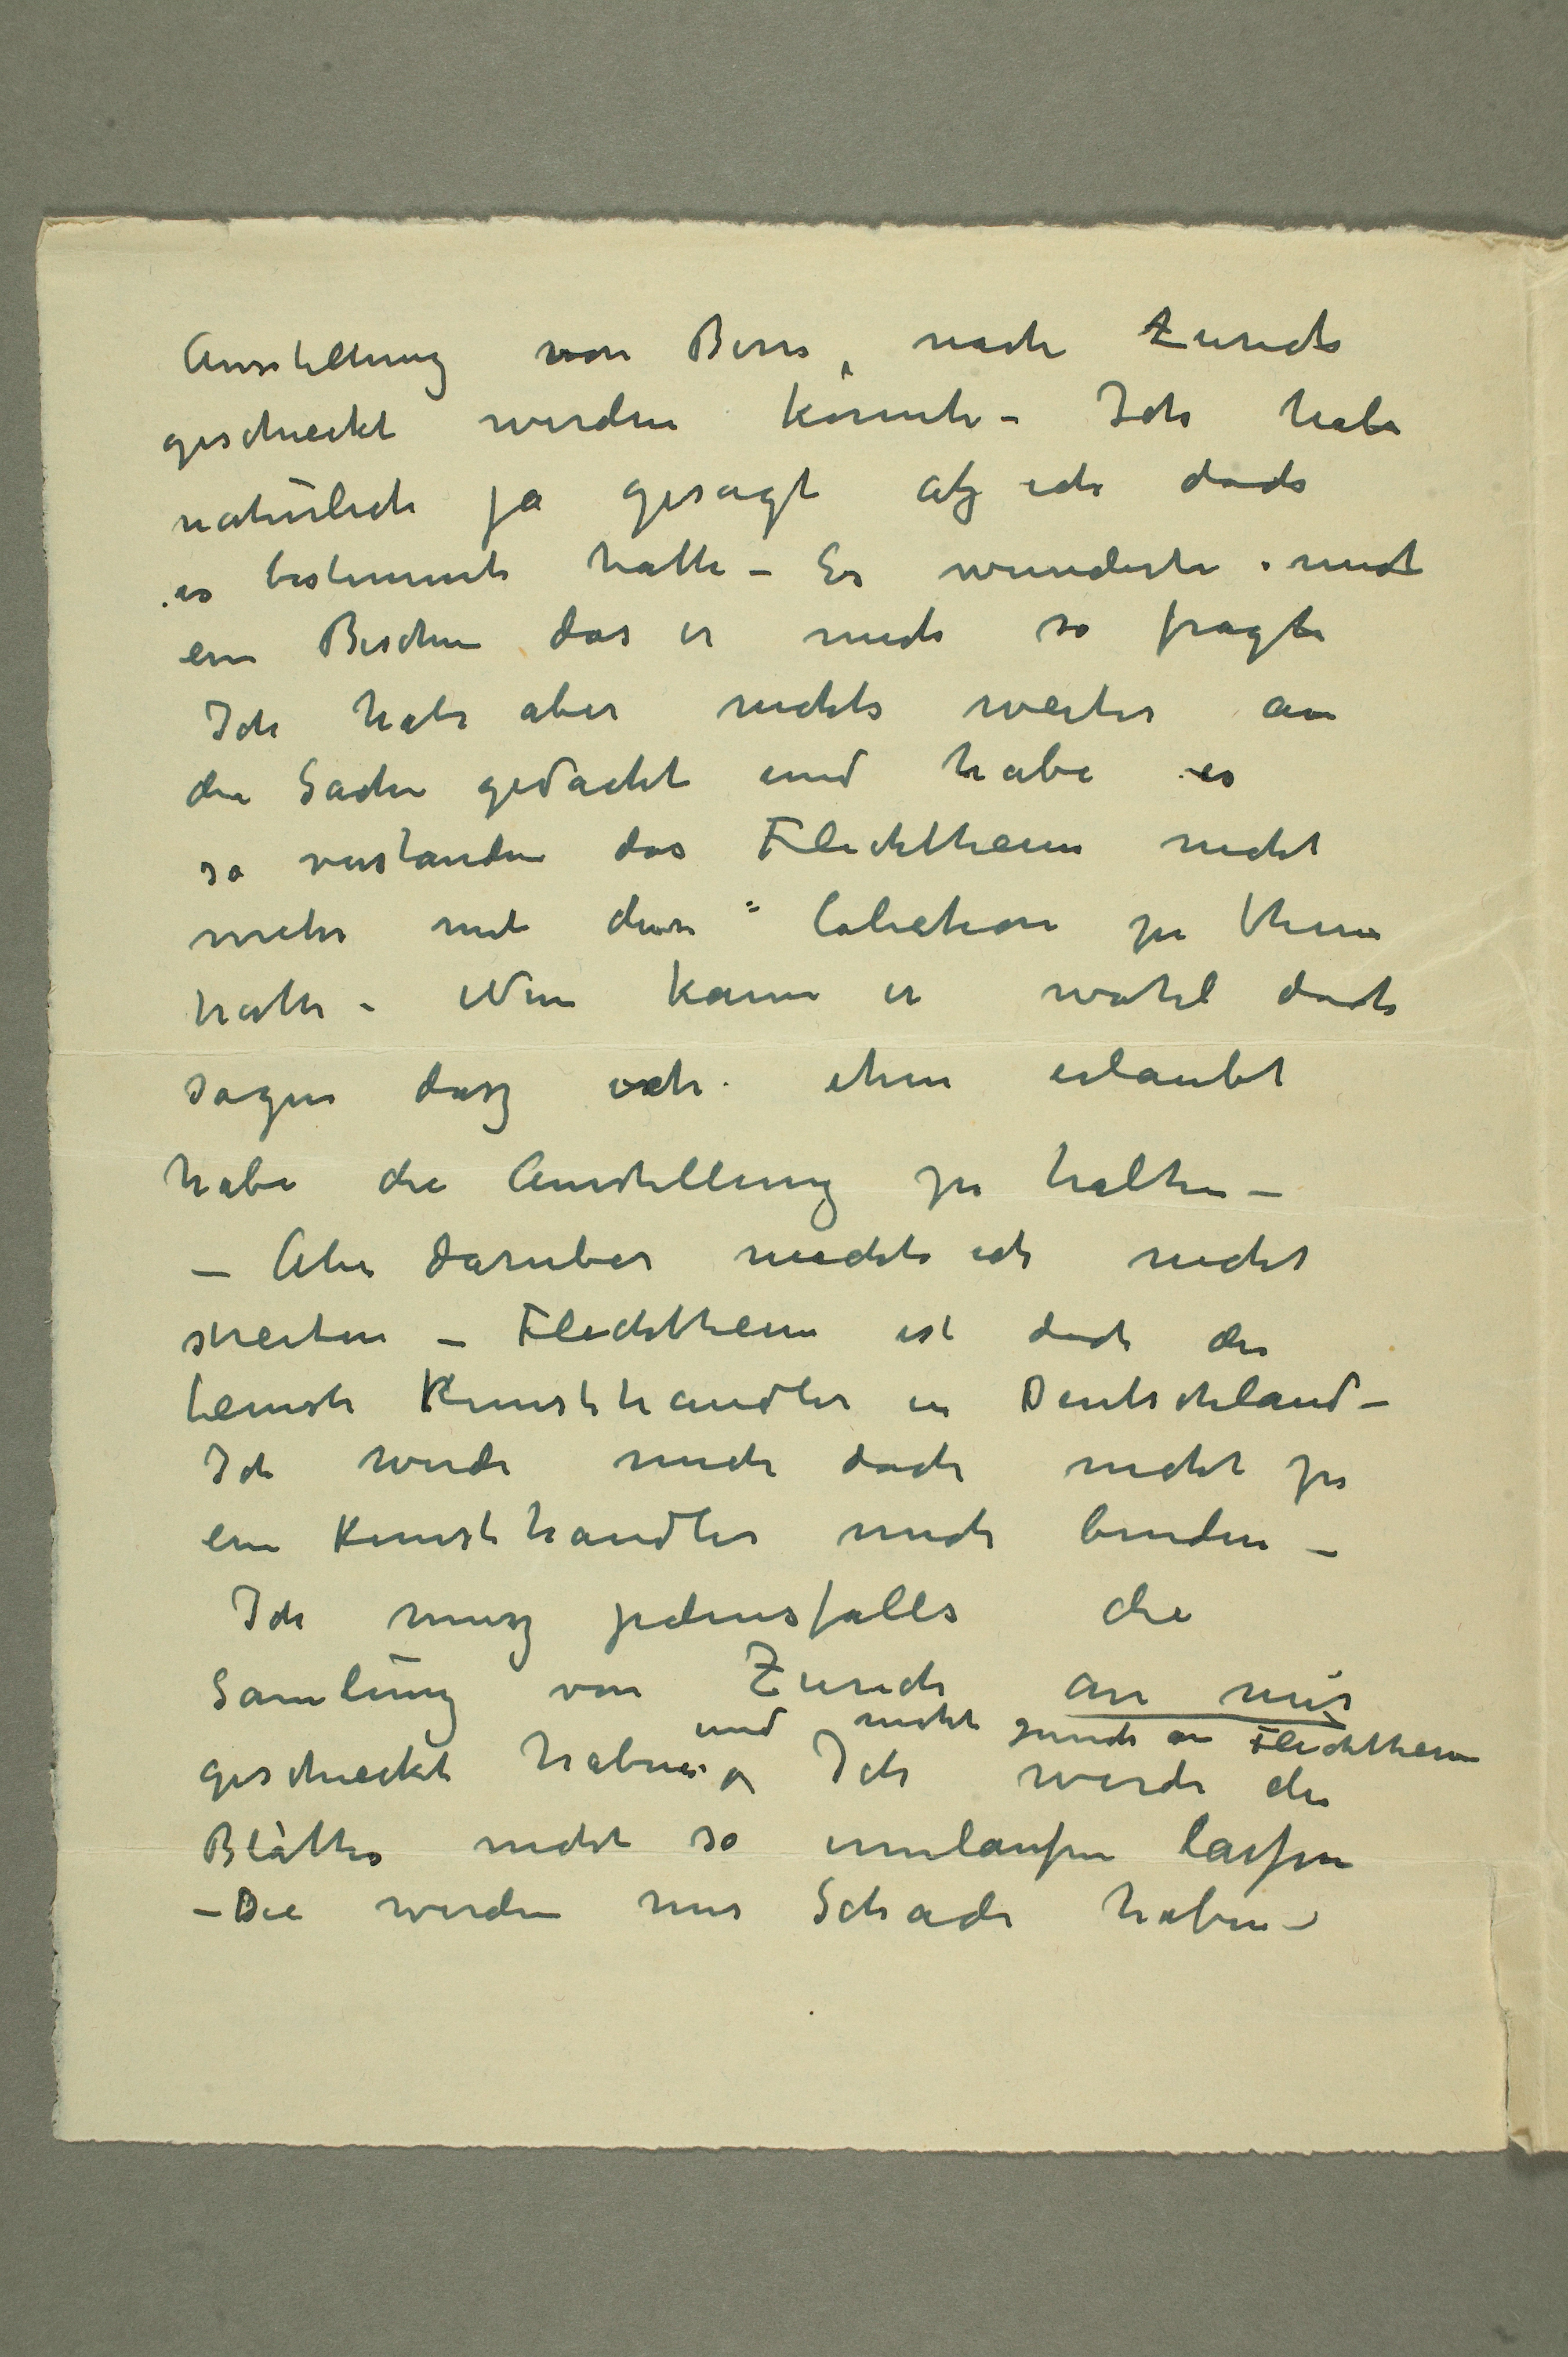 Ausstellung von Bern, nach Zurich
geschieckt werden könnte – Ich habe
natürlich ja gesagt alz ich doch
es bestimmt hatte – Es wunderte mich
ein Bischen das er mich so fragte
Ich habe aber nichts weiter an
die Sache gedacht und habe es
so verstanden das Flechtheim nicht
mehr mit diese Colection zu thun
hatte – Nun kann er wohl doch
sagen dasz ich ihm erlaubt
habe die Ausstellung zu halten –
– Aber daruber möchte ich nicht
streiten – Flechtheim ist doch der
Kunsthandler in Deutschland –
Ich werde mich doch nicht zu
ein Kunsthandler mich binden –
Ich musz jedensfalls die
Samlung von Zurich an mir
und nicht zurück an Flechtheim
geschieckt haben Ich werde die
Blätter nicht so umlaufen lassen
– Die werden nur Schade haben –